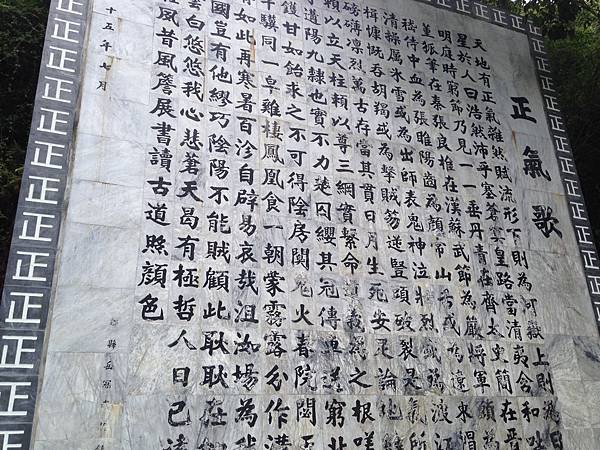 正氣歌
天地有正氣雜然賦流形下則為河嶽上則為日
星於人曰浩然沛乎塞蒼冥皇路當清夷含和吐
明庭時窮節乃見一一垂丹青在齊太史簡在晉
董狐筆在秦張良椎在漢蘇武節為嚴將軍頭為
嵇侍中血為張睢陽齒為顏常山舌或為遼東帽
清操厲冰雪或為出師表鬼神泣壯烈或為渡江
楫慷慨吞胡羯或為擊賊笏逆豎頭破裂是氣所
磅礡凜烈萬古存當其貫日月生死安足論地維
賴以立天柱賴以尊三綱實繫命道義為之根嗟
遘陽九隸也實不力楚囚纓其冠傳車送窮北
鑊甘如飴求之不可得陰房闃鬼火春院閟
牛驥同一皁雞棲鳳凰食一朝蒙霧露分作溝
如此再寒暑百沴自辟易哀哉沮洳場為我
國豈有他繆巧陰陽不能賊顧此耿耿在
雲白悠悠我心悲蒼天曷有極哲人日已遠
在夙昔風簷展書讀古道照顏色
十五年七月
正正正正正正正